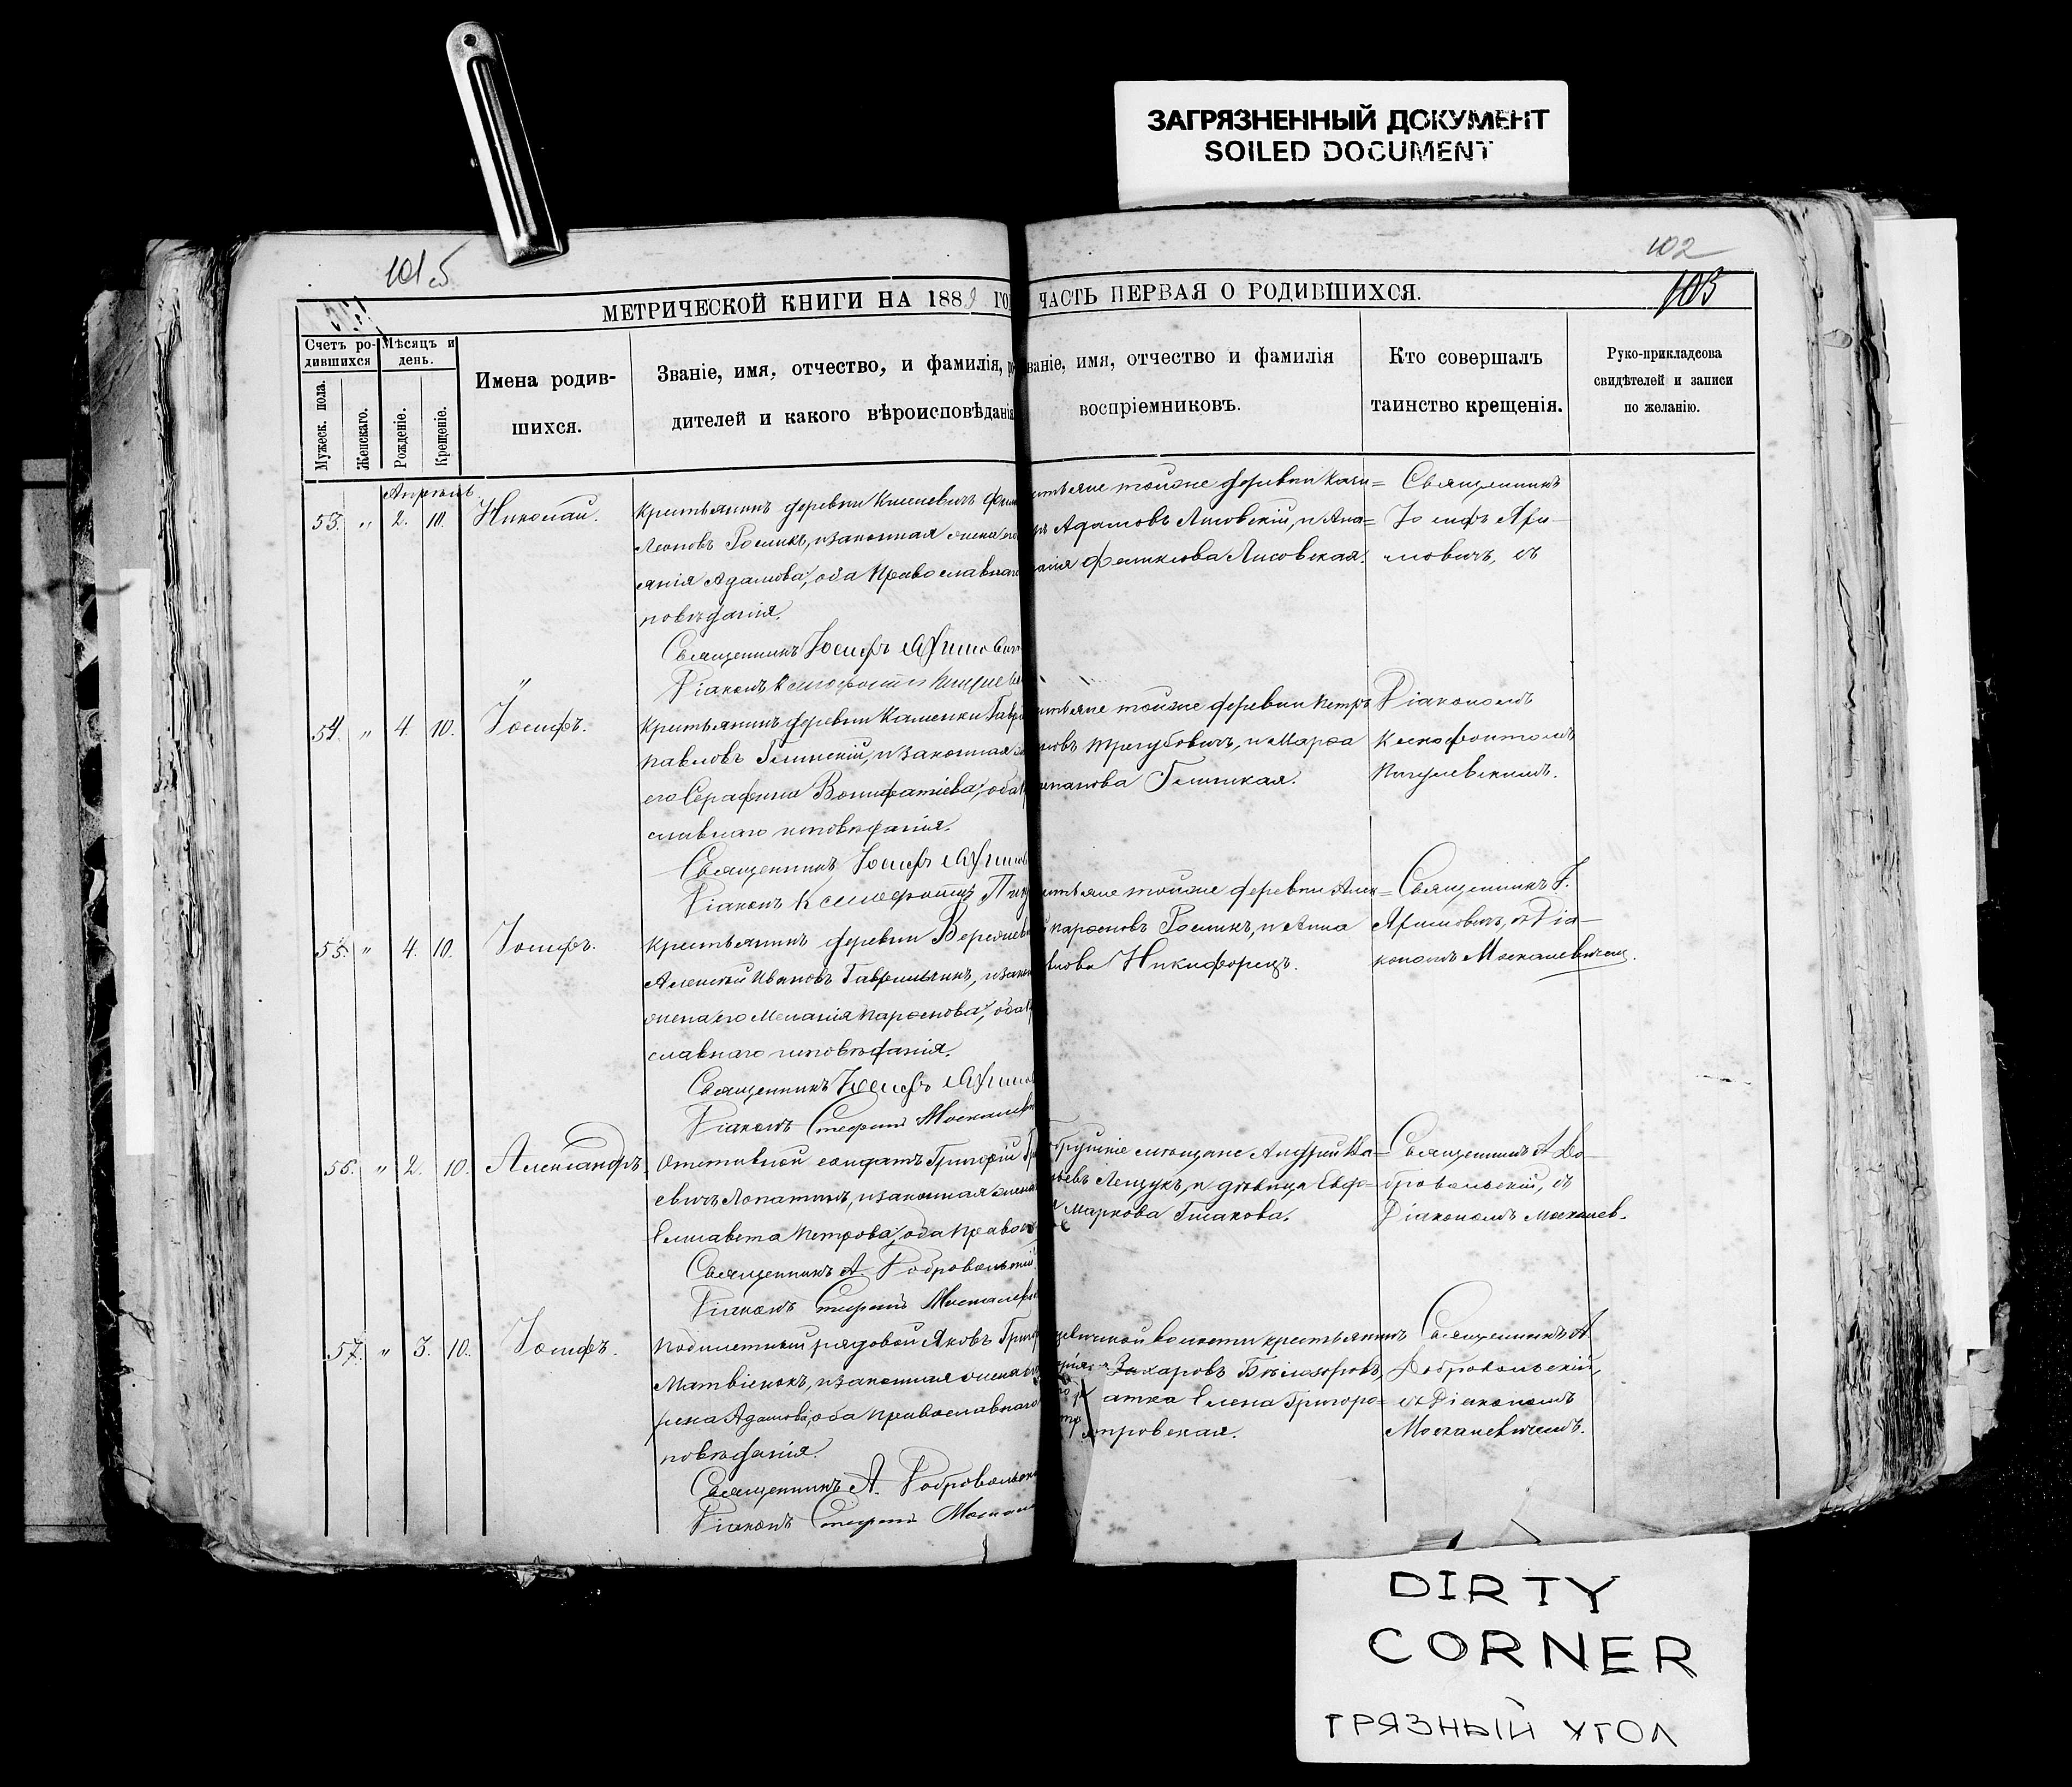 ЗАГРЯЗНЕННЫЙ ДОКУМЕНТ
SOILED DOCUMENT
101 об
102
103
МЕТРИЧЕСКОЙ КНИГИ НА 1889 ГО
ЧАСТЬ ПЕРВАЯ О РОДИВШИХСЯ.
Счетъ ро-
дившихся
Мужеск. пола.
Женскаго.
Мѣсяцъ и
день.
Рожденіе.
Крещеніе.
Имена родив-
шихся.
Званіе, имя, отчество, и фамилія, р
дителей и какого вѣроисповѣданія
ваніе, имя, отчество и фамилія
воспріемниковъ.
Кто совершалъ
таинство крещенія.
Руко-прикладсова
свидѣтелей и записи
по желанію.
Апрѣль.
53. " 2. 10. Николай.
Крестьянинъ деревни
Леоновъ Росликъ, и законная жена его
Адамова, оба Православнаго
повѣданія.
Священникъ Іосифъ
Діаконъ Ксенофонтъ
стьяне тойже деревни
Адамовъ Лисовскій, и Ана=
Феликсова Лисовская.
Священникъ
Іосифъ Ари-
мовичъ, съ
"
54. " 4. 10. Іосифъ.
Крестьянинъ деревни Каменки Гаврі
Павловъ Глинскій, и законная
его Серафима Вонифатіева, оба
славнаго исповѣданія.
Священникъ Іосифъ
Діаконъ Ксенофонтъ
стьяне тойже деревни Петръ
новъ Трегубовичъ, и Марѳа
епанова Глинская.
Діакономъ
Ксенофонтомъ
55. " 4. 10. Іосифъ.
Крестьянинъ деревни
Алексѣй Ивановъ Гаврильчикъ, и закон
жена его Меланія Парѳенова, оба
славнаго исповѣданія.
Священникъ Іосифъ
Діаконъ Стефанъ
стьяне тойже деревни Алек=
Парѳеновъ Росликъ, и Анна
Никифорецъ.
Священникъ І.
Аримовичъ, съ Діа-
кономъ Москалевичемъ.
56. " 2. 10. Александръ.
Отставной солдатъ Григорій
евичъ Лопатинъ, и законная жена
Елисавета Петрова, оба Правос
Священникъ А. Добровольскій
Діаконъ Стефанъ
обруйскіе мѣщане Андрей
Лещукъ, и дѣвица Евфро-
Маркова Гмакова.
Священникъ А. До-
бровольскій, съ
Діакономъ Москалев.
57. " 3. 10. Іосифъ.
рядовой Яковъ Григ
Матвіенокъ, и законная жена
рена Адамова, оба православнаго
повѣданія.
Священникъ А. Добровольск
Діаконъ Стефанъ
волости крестьянинъ
Захаровъ Бѣлозоровъ,
Елена Григоро-
Священникъ А.
Добровольскій,
съ Діакономъ
Москалевичемъ.
DIRTY
CORNER
ГРЯЗНЫЙ УГОЛ